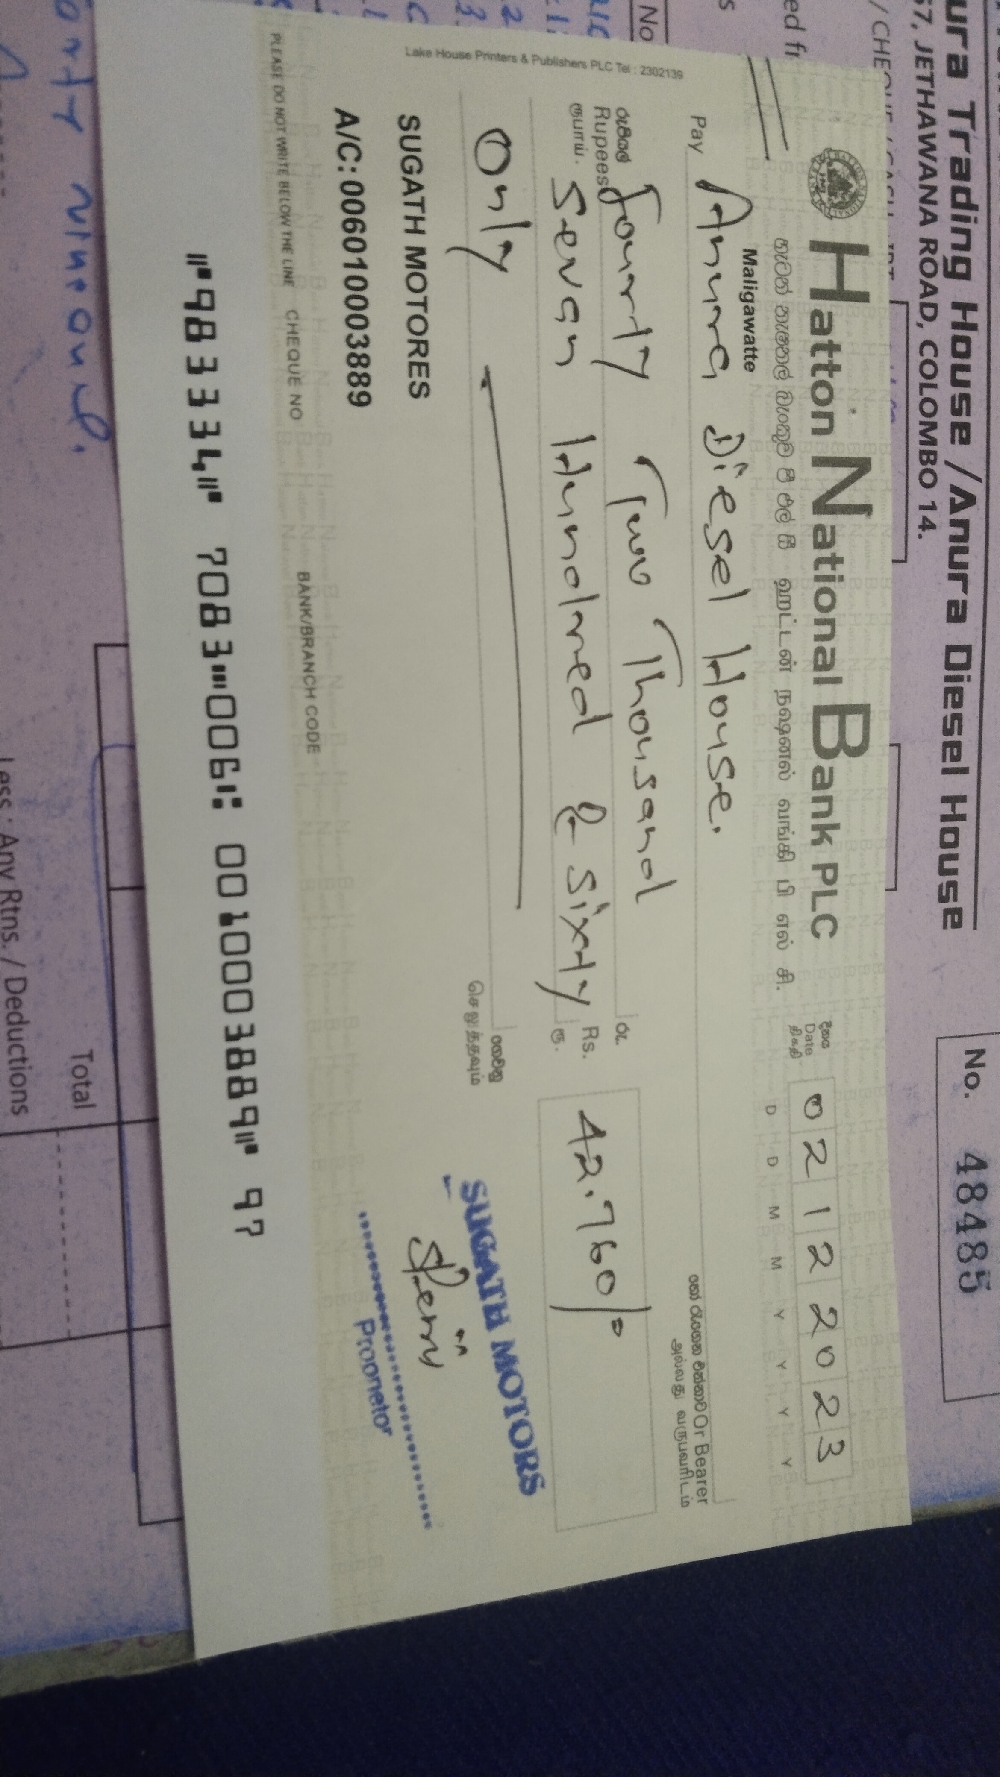 ura Trading House /Anura Diesel House
67, JETHAWANA ROAD, COLOMBO 14.
No. 48485
Hatton National Bank PLC
හැටන් නැෂනල් බැංකුව පී එල් සී ஹட்டன் நஷனல் வங்கி பி எல் சி.
Maligawatte
දිනය
Date
திகதி
0 2 1 2 2 0 2 3
D D M M Y Y Y Y
Pay Anura Diesel House.
Or Bearer
அல்லது வருபவரிடம்
රුපියල්
Rupees
ரூபாய்.
Fourty Two Thousand
Seven Hundred & Sixty
Only
රු.
Rs.
ரூ.
42.760/=
ගෙවනු
செலுத்தவும்
SUGATH MOTORES
A/C:006010003889
SUGATH MOTORS
Proprietor
Lake House Printers & Publishers PLC Tel : 2302139
PLEASE DO NOT WRITE BELOW THE LINE CHEQUE NO BANK/BRANCH CODE
⑈983334⑈ 7083⑉006⑆ 0010003889⑈ 97
Total
Less : Any Rtns. / Deductions